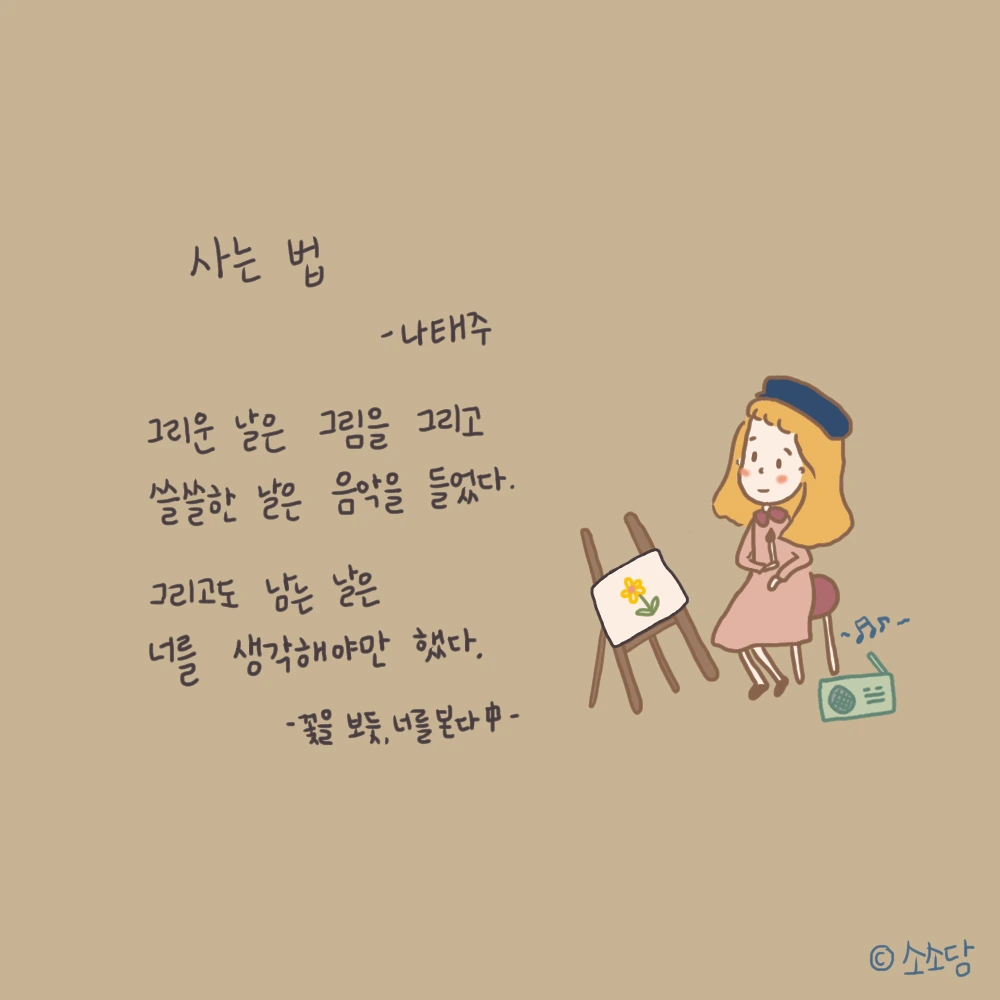 사는 법
-나태주
그리운 날은 그림을 그리고
쓸쓸한 날은 음악을 들었다.
그리고도 남는 날은
너를 생각해야만 했다.
-꽃을 보듯, 너를 본다 中-
© 소소당